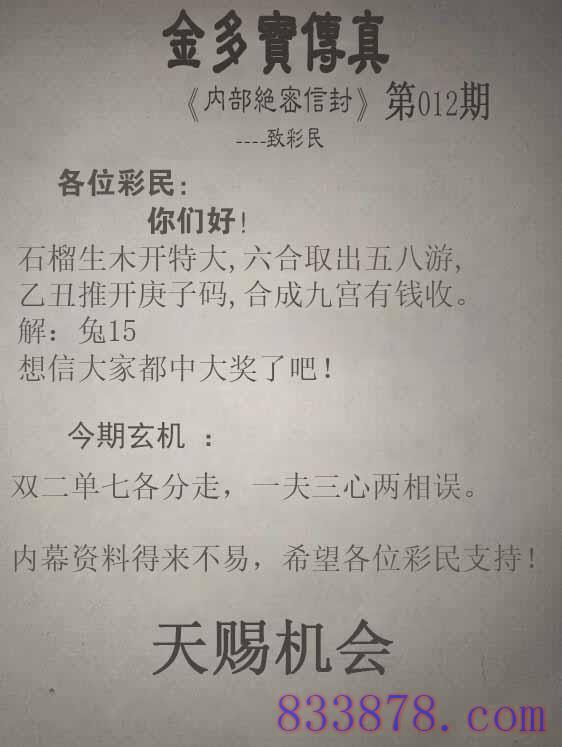 金多寶傳真
《内部絶密信封》第012期
----致彩民
各位彩民:
你们好!
石榴生木开特大,六合取出五八游,
乙丑推开庚子码,合成九宫有钱收。
解：兔15
想信大家都中大奖了吧!
今期玄机 :
双二单七各分走，一夫三心两相误。
内幕资料得来不易，希望各位彩民支持!
天赐机会
833878.com